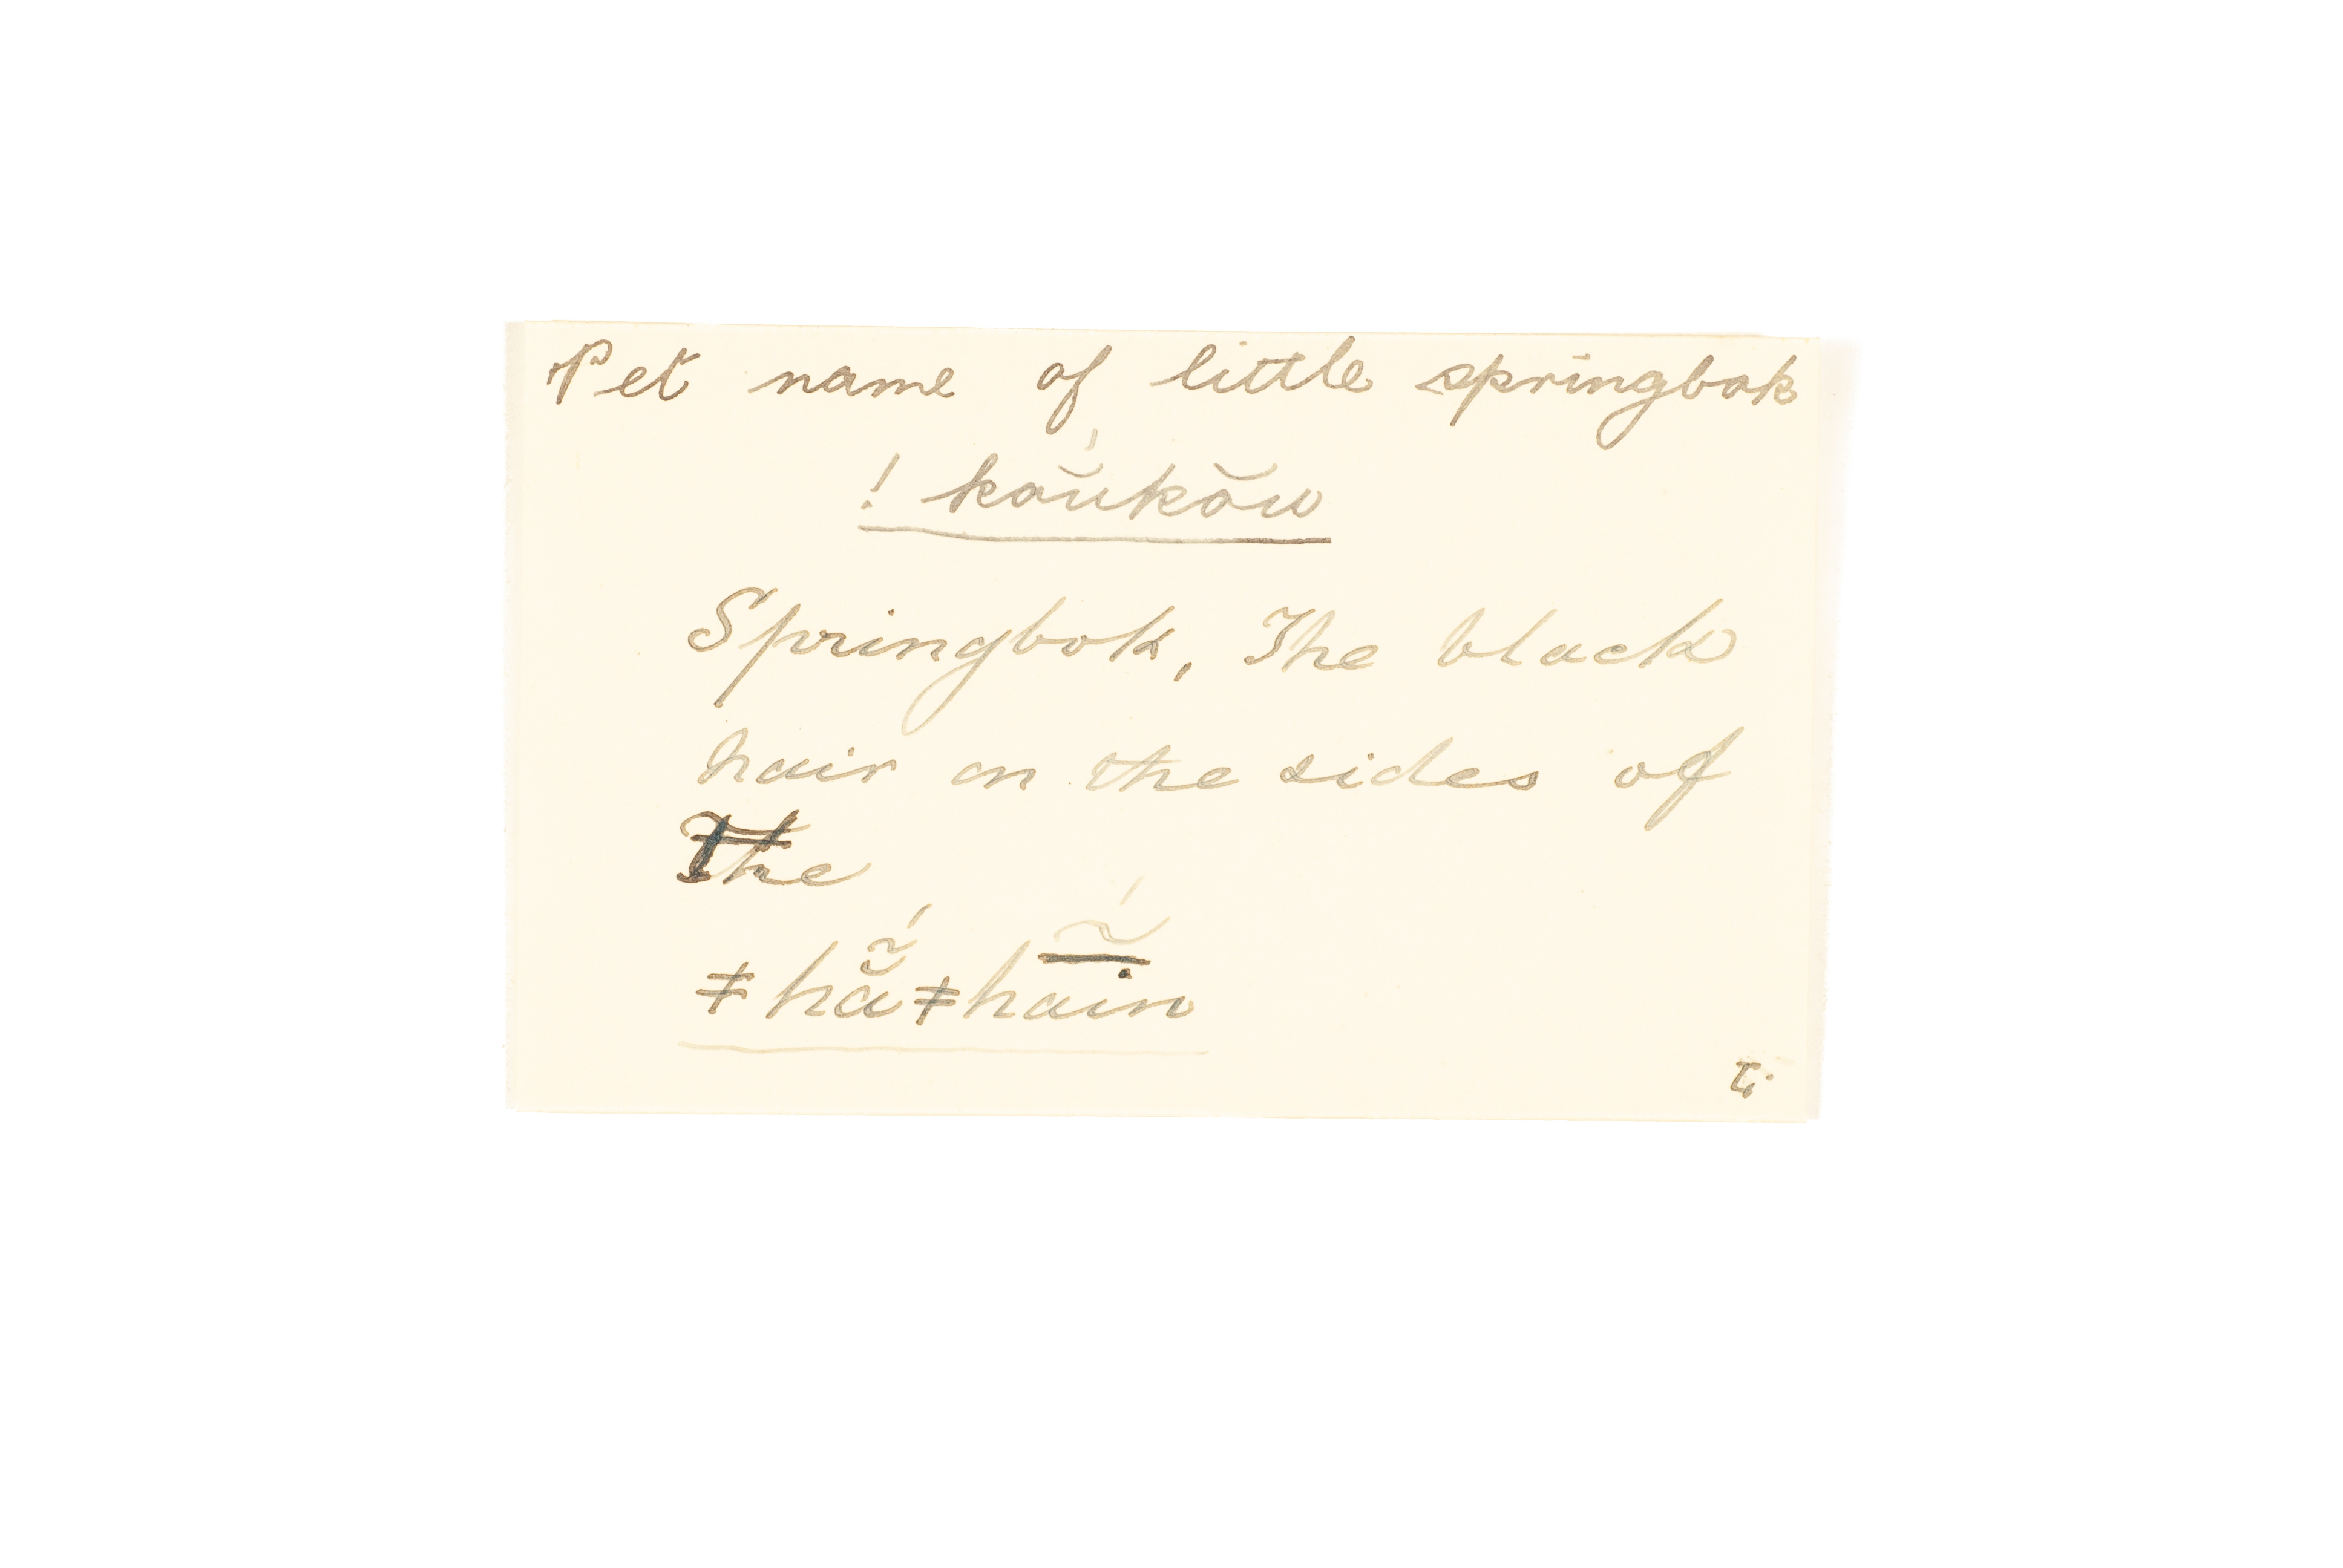 Pet name of little springbok
! kaŭ́kău
Springbok, The black
hair on the sides of
The
≠hẵ́≠hain